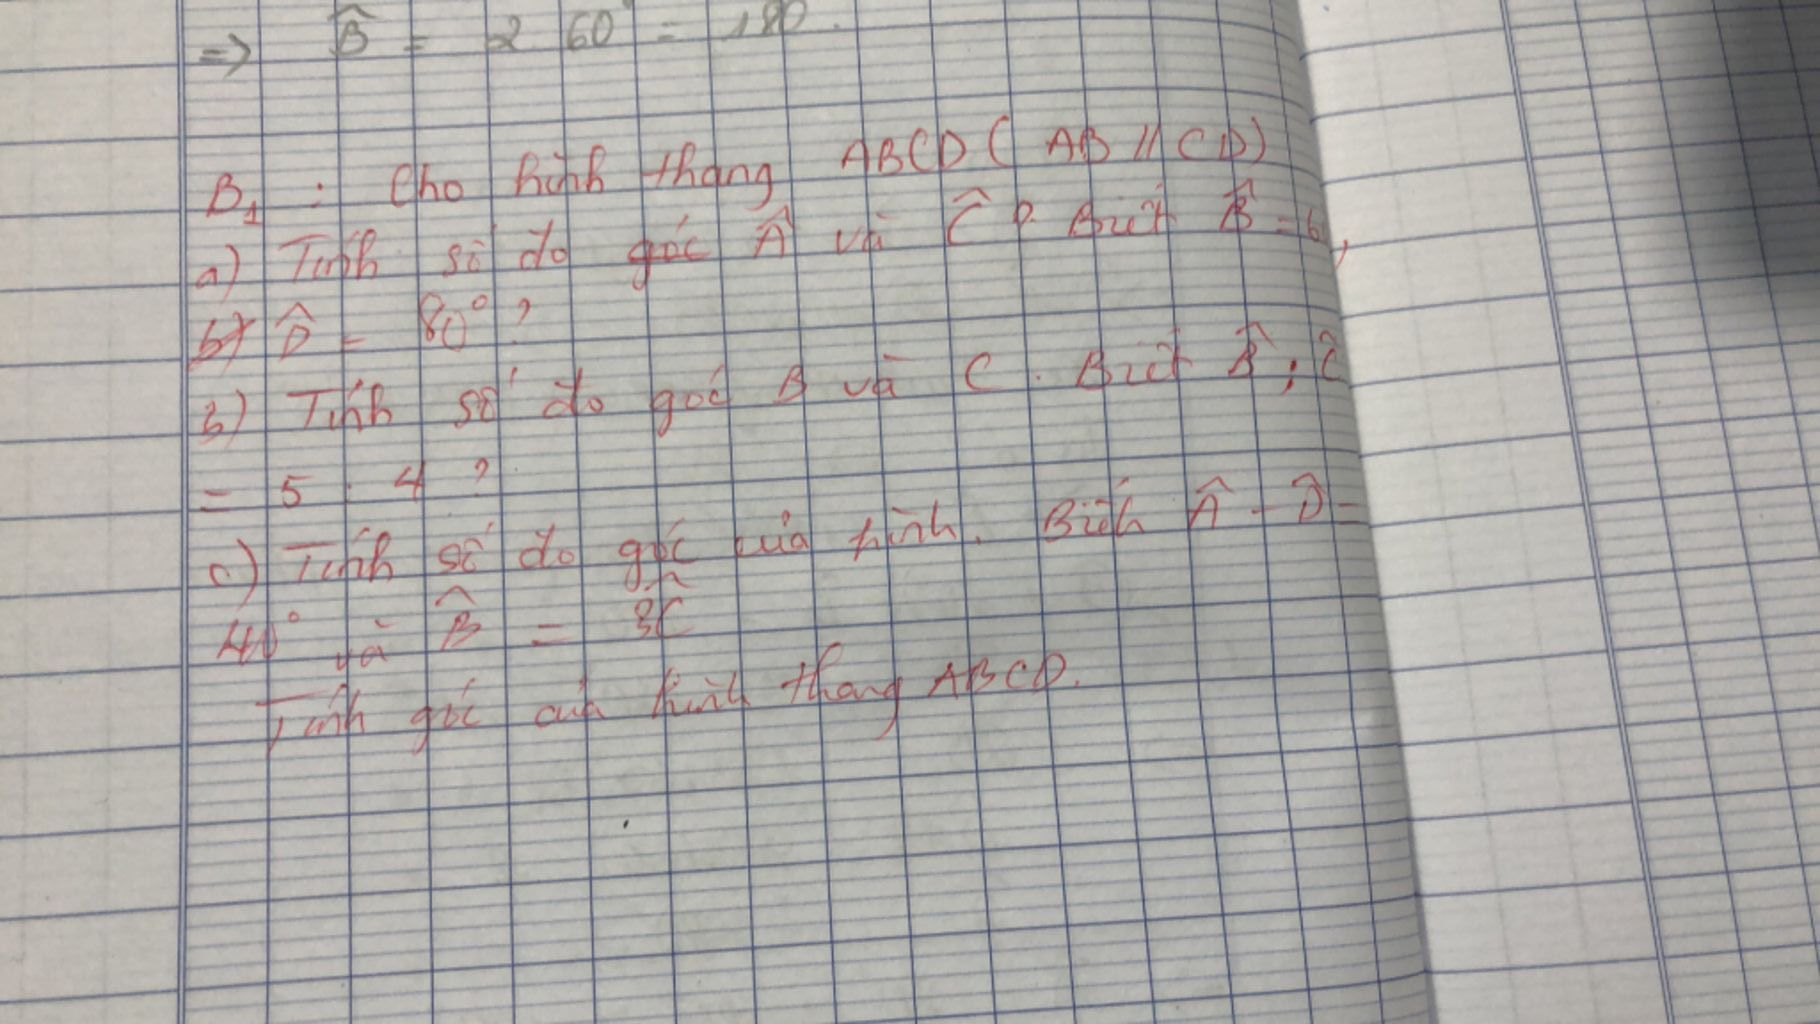 => B̂ = 2 60° = 180.
B₁ : Cho hình thang ABCD ( AB // CD)
a) Tính số đo góc Â và Ĉ ? Biết B̂ = 6
D̂ = 80° ?
b) Tính số đo góc B và C. Biết B̂ : Ĉ
= 5 : 4 ?
c) Tính số đo góc của hình. Biết Â - D̂ =
40° và B̂ = 3Ĉ
Tính góc của hình thang ABCD.